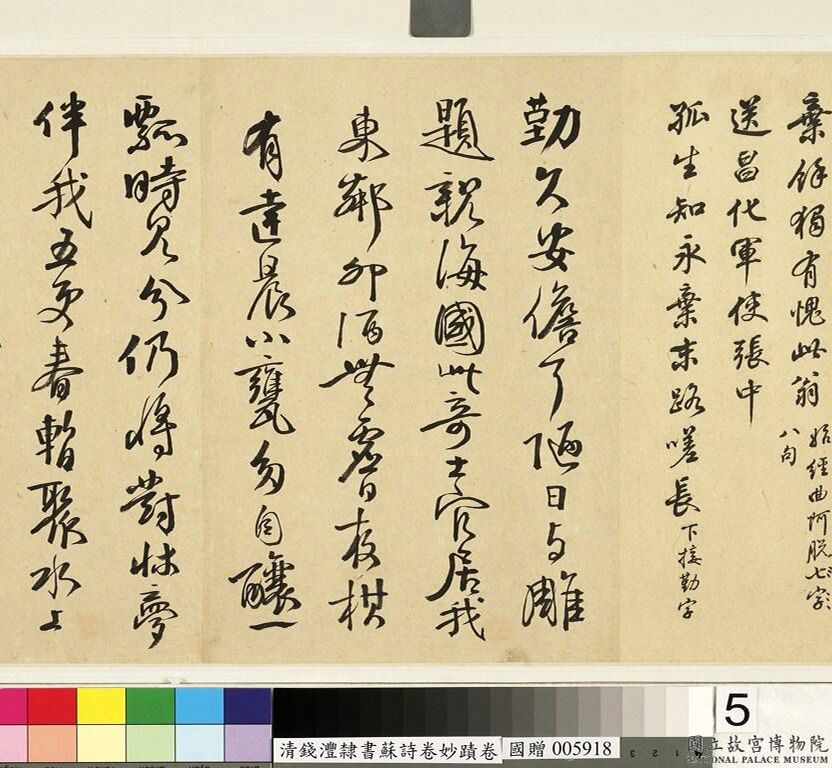 棄餘獨有愧此翁
始經曲阿脫七字
八句
送昌化軍使張中
孤生知永棄末路嗟長
下接勤字
勤久安儋耳陋日与雕
題親海國此奇士官居我
東鄰卯酒無虛日夜棋
有達晨小甕多自釀一
瓢時見分仍將對牀夢
伴我五更春暫聚水上
5
清錢灃隸書蘇詩卷妙蹟卷
國贈 005918
國立故宮博物院
NATIONAL PALACE MUSEUM